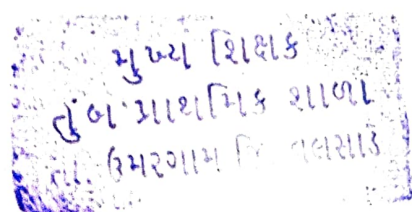 મુખ્ય શિક્ષક
તુંબ પ્રાથમિક શાળા
તા. ઉમરગામ જિ. વલસાડ